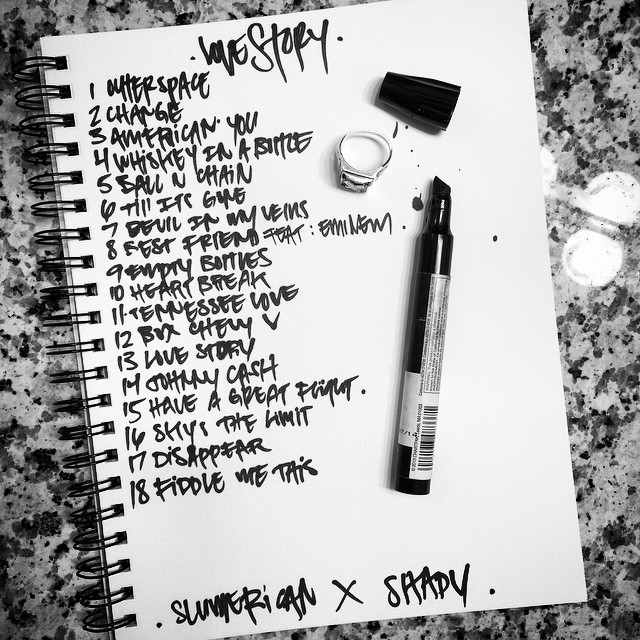 . Love Story .
1 OUTERSPACE
2 CHANGE
3 AMERICAN YOU
4 WHISKEY IN A BOTTLE
5 BALL N CHAIN
6 Till ITS GONE
7 DEVIL IN MY VEINS
8 BEST FRIEND FEAT: EMINEM
9 EMPTY BOTTLES
10 HEART BREAK
11 TENNESSEE LOVE
12 BOX CHEVY V
13 LOVE STORY
14 JOHNNY CASH
15 HAVE A GREAT FLIGHT.
16 SKYS THE LIMIT
17 DISAPPEAR
18 FIDDLE ME THIS
. SLUMERiCAN X SHADY .